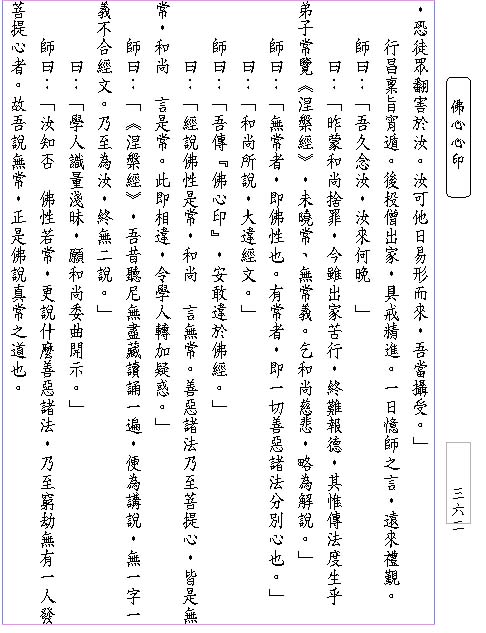 ，恐徒眾翻害於汝。汝可他日易形而來，吾當攝受。」
行昌稟旨宵遁。後投僧出家，具戒精進。一日憶師之言，遠來禮覲。
師曰：「吾久念汝，汝來何晚　」
曰：「昨蒙和尚捨罪，今雖出家苦行，終難報德，其惟傳法度生乎
弟子常覽《涅槃經》，未曉常、無常義。乞和尚慈悲，略為解說。」
師曰：「無常者，即佛性也。有常者，即一切善惡諸法分別心也。」
曰：「和尚所說，大違經文。」
師曰：「吾傳『佛心印』，安敢違於佛經。」
曰：「經說佛性是常，和尚　言無常。善惡諸法乃至菩提心，皆是無
常，和尚　言是常。此即相違，令學人轉加疑惑。」
師曰：「《涅槃經》，吾昔聽尼無盡藏讀誦一遍，便為講說，無一字一
義不合經文。乃至為汝，終無二說。」
曰：「學人識量淺昧，願和尚委曲開示。」
師曰：「汝知否　佛性若常，更說什麼善惡諸法，乃至窮劫無有一人發
菩提心者。故吾說無常，正是佛說真常之道也。
佛心心印
三六二